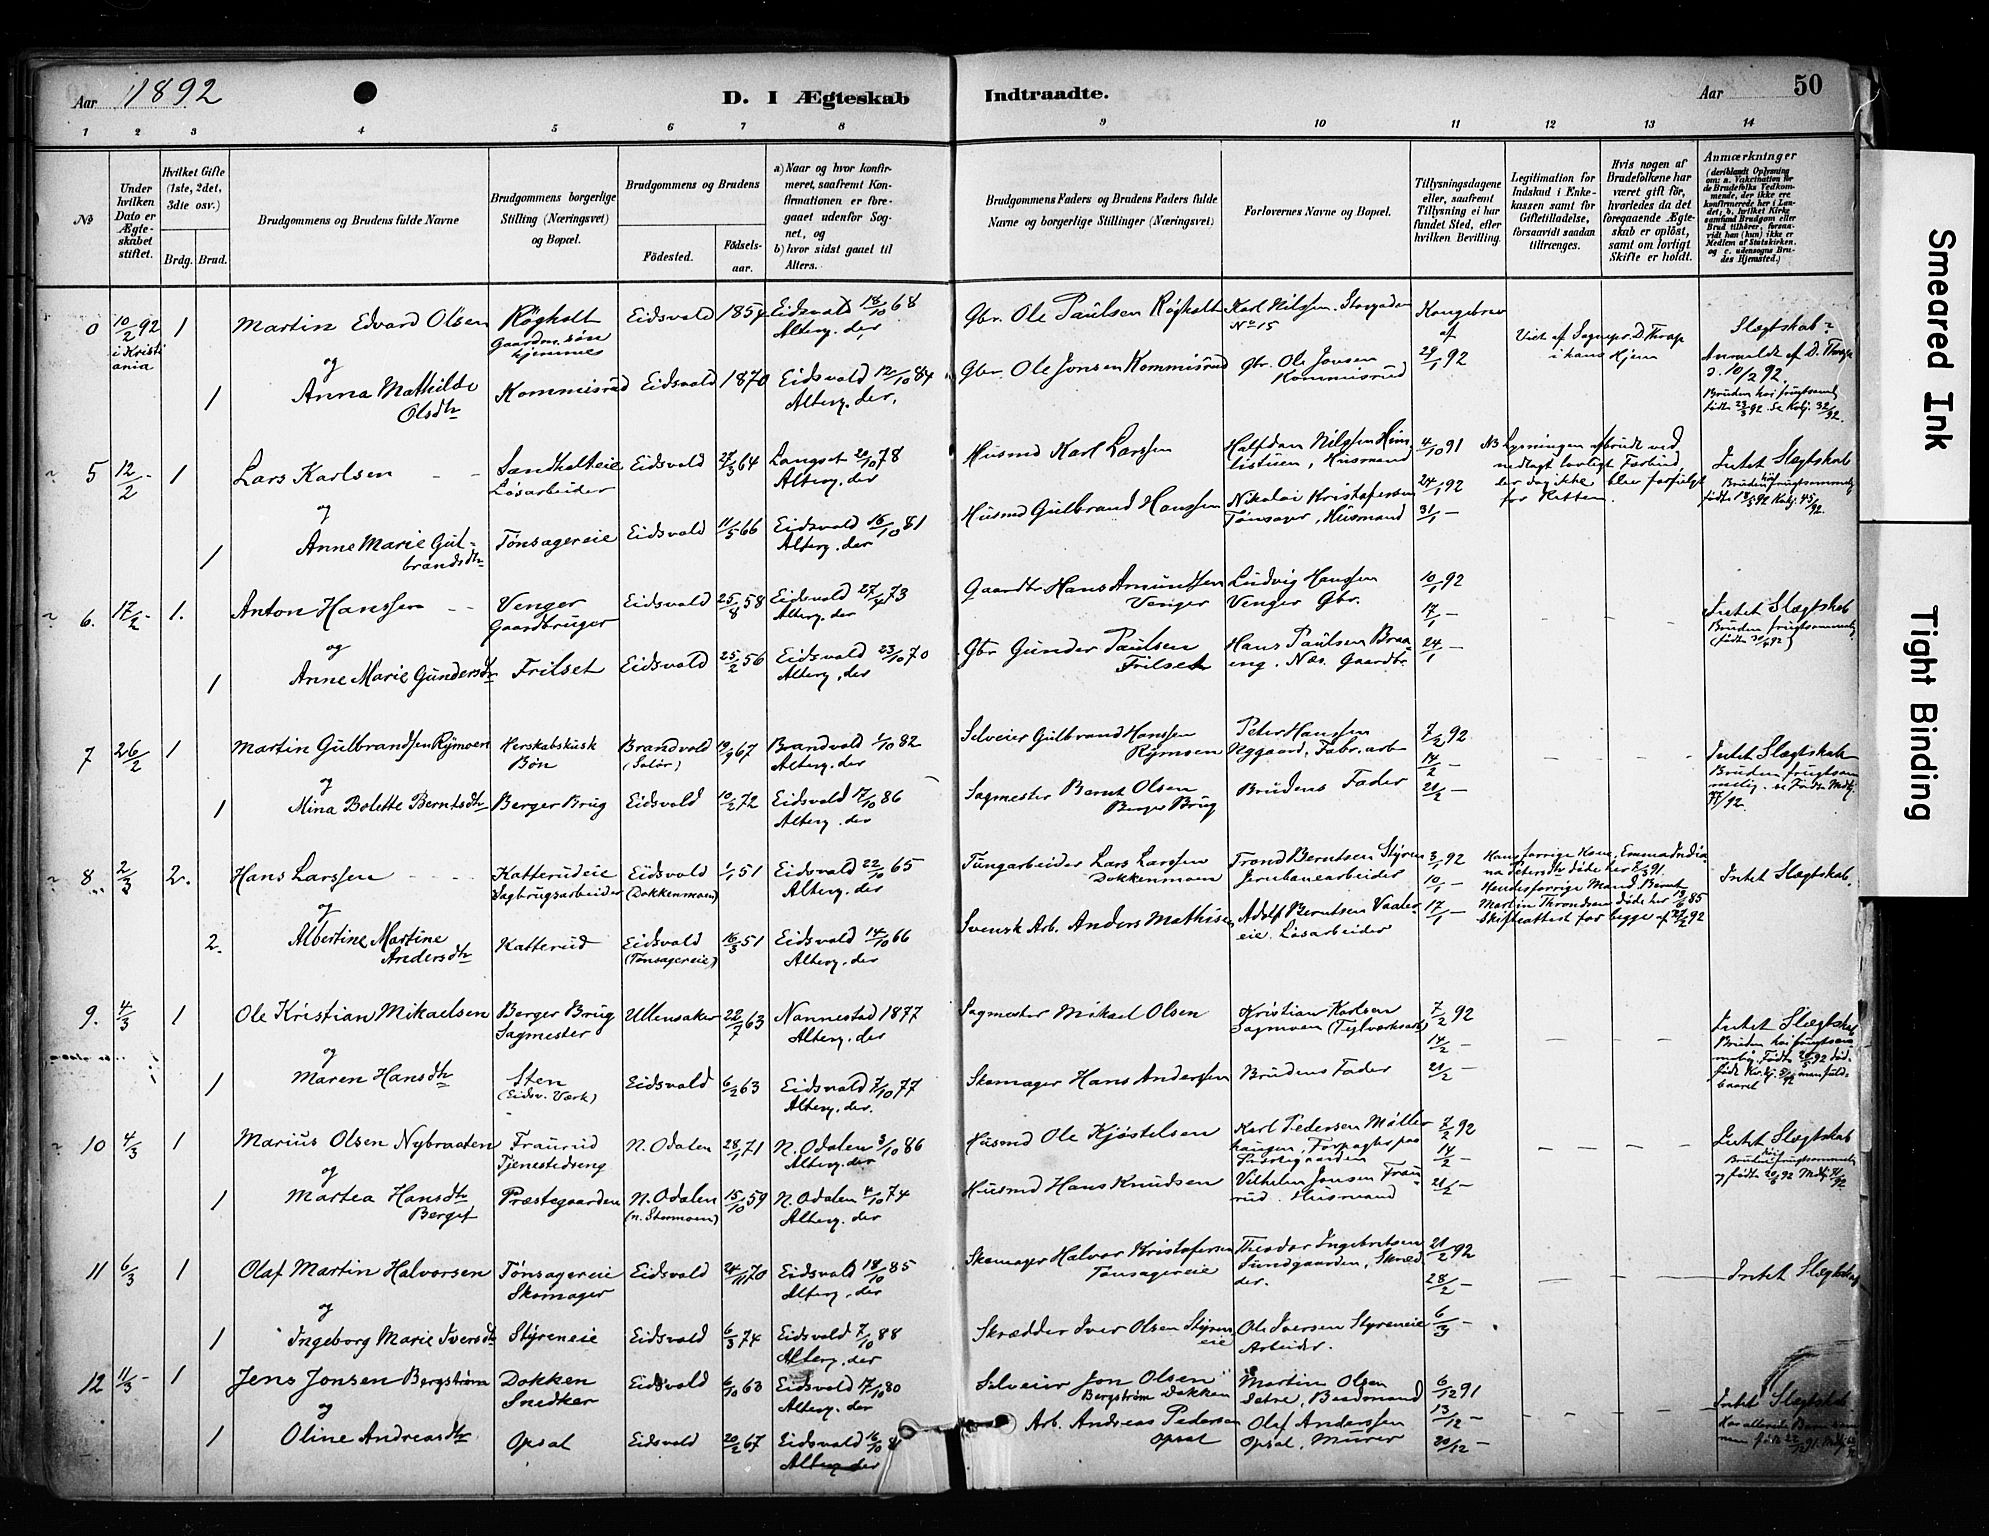 Aar 1892
D. I Ægteskab Indtraadte.
Aar 50
1 2 3 4 5 6 7 8 9 10 11 12 13 14
No
Under hvilken Dato er Ægteskabet stiftet.
Hvilket Gifte (1ste, 2det, 3die osv.)
Brdg. Brud.
Brudgommens og Brudens fulde Navne
Brudgommens borgerlige Stilling (Næringsvei) og Bopæl.
Brudgommens og Brudens
Födested.
Födselsaar.
a) Naar og hvor konfirmeret, saafremt Konfirmationen er foregaaet udenfor Sognet, og
b) hvor sidst gaaet til Alters.
Brudgommens Faders og Brudens Faders fulde Navne og borgerlige Stillinger (Næringsvei)
Forlovernes Navne og Bopæl.
Tillysningsdagene eller, saafremt Tillysning ei har fundet Sted, efter hvilken Bevilling.
Legitimation for Indskud i Enkekassen samt for Giftetilladelse, forsaavidt saadan tiltrænges.
Hvis nogen af Brudefolkene har været gift för, hvorledes da det foregaaende Ægteskab er oplöst, samt om lovligt Skifte er holdt.
Anmærkninger
(deriblandt Oplysning om: a. Vakcination for de Brudefolks Vedkommende, der ikke ere konfirmerede her i Landet; b. hvilket Kirkesamfund Brudgom eller Brud tilhörer, forsaavidt han (hun) ikke er Medlem af Statskirken, og c. udensogns Brudes Hjemsted.)
0 10/2 92 i Kristiania 1 Martin Edvard Olsen Røgholt Gaardm. søn hjemmes Eidsvold 1854 Eidsvold 18/10 68 Alterg. der, Gbr. Ole Paulsen Røgholt Karl Nilsen, Storgaden No 15 Kongebrev af 29/1 92 Viet af Sognepr. D. Thrap i hans Hjem Slegtskab?
og
1 Anna Mathilde Olsdtr Kommisrud Eidsvold 1870 Eidsvold 12/10 84 Alterg. der, Gbr. Ole Jonsen Kommisrud Gbr. Ole Jonsen Kommisrud Anmeldt af D. Thrap d. 10/2 92, Bruden hoi frugtsom, født 23/3 92. Se Kbj. 32/92.
5 12/2 - 1 Lars Karlsen Sandholteie Løsarbeider Eidsvold 27/3 64 Langset 20/10 78 Alterg. der Husmd Karl Larsen Halfdan Nilssen, Husmand 4/10 91 NB Lysningen afbrudt ved nedlagt lovligt Forbud der dog ikke blev forfulgt for Retten. Intet Slegtskab
og
1 Anne Marie Gulbrandsdtr Tønsagereie Eidsvold 11/5 66 Eidsvold 16/10 81 Alterg. der Husmd Gulbrand Hanssen Nikolai Kristofersen Tønsager, Husmand 24/1 92 31/1 - Bruden høi frugtsommelig, født 18/3 92 Kbj. 45/92.
6. 17/2 - 1. Anton Hanssen Venger Gaardbruger Eidsvold 25/8 58 Eidsvold 27/4 73 Alterg. der Gaardbr Hans Amundsen Venger Ludvig Hanssen Venger Gbr. 10/1 92 17/1 - Intet Slegtskab Bruden frugtsommelig
og
1 Anne Marie Gundersdtr Frilset Eidsvold 25/2 56 Eidsvold 23/10 70 Alterg. der Gbr Gunder Paulsen Frilset Hans Paulsen Braaeng. Næs. Gaardbr. 24/1 -
7 26/2 1 Martin Gulbrandsen Rymoen Herskabskusk Bøn Brandvold (Solør) 19/9 67 Brandvold 1/10 82 Alterg. der Selveier Gulbrand Hanssen Rymoen Peter Hanssen Nygaard, Fabr. arb 7/2 92 14/2 - Intet Slegtskab
og
1 Mina Bolette Berntsdtr Berger Brug Eidsvold 10/2 72 Eidsvold 17/10 86 Alterg. der Sagmester Bernt Olsen Berger Brug Brudens Fader 21/2 - Bruden frugtsommelig.
8. 2/3 2. Hans Larssen Katterudeie Sagbrugsarbeider Eidsvold (Dokkenmoen) 1/1 51 Eidsvold 22/10 65 Alterg. der Tungarbeider Lars Larssen Dokkenmoen Trond Berntsen Styren Jernbanearbeider 3/1 92 10/1 - Hans forrige Kone, Emma Indiana Petersdtr døde her 7/3 91. Intet Slegtskab.
og
2. Albertine Martine Andersdtr Katterud Eidsvold (Tønsagereie) 16/3 51 Eidsvold 14/10 66 Alterg. der Svensk Arb. Anders Mathisen Adolf Berntsen Vaalereie. Løsarbeider 17/1 - Hendes forrige Mand, Bernt Martin Throndsen døde her 13/6 85 Skifteattest for begge af 27/2 92
9. 4/3 1 Ole Kristian Mikaelsen Berger Brug Sagmester Ullensaker 22/7 63 Nannestad 1877 Alterg. der Sagmester Mikael Olsen Kristian Karlsen Sagmoen (Teglverksarb) 7/2 92 14/2 - Intet Slegtskab
og
1 Maren Hansdtr Sten (Eidsv. Værk) Eidsvold 6/2 63 Eidsvold 7/10 77 Alterg. der. Skomager Hans Anderssen Brudens Fader 21/2 - Bruden hoi frugtsommelig.
10 4/3 1 Marius Olsen Nybraaten Fraurud Tjenestedreng N. Odalen 28/1 71 N. Odalen 3/10 86 Alterg. der Husmd Ole Kjøstelsen Karl Pedersen Møllerhaugen, Forpagter paa Præstegaarden 7/2 92 14/2 - Intet Slegtskab
og
1 Martea Hansdtr Berget Præstegaarden N. Odalen (n. Stormoen) 15/10 59 N. Odalen 4/10 74 Alterg. der Husmd Hans Knudsen Vilhelm Jonsen Fraurud. Husmand 21/2 - Bruden høi frugtsommelig
11 6/3 1 Olaf Martin Halvorsen Tønsagereie Skomager Eidsvold 24/11 70 Eidsvold 18/10 85 Alterg. der Skomager Halvor Kristofersen Tønsagereie Theodor Ingebritsen Sundgaarden, Skrædder. 21/2 92 28/2 - Intet Slegtskab
og
1 Ingeborg Marie Iversdtr Styreneie Eidsvold 6/3 74 Eidsvold 7/10 88 Alterg. der Skrædder Iver Olsen Styreneie Ole Iversen Styreneie Arbeider. 6/3 -
12 11/3 - 1 Jens Jonsen Bergstrøm Dokken Snedker Eidsvold 6/10 63 Eidsvold 17/10 80 Alterg. der Selveier Jon Olsen Bergstrøm Dokken Martin Olsen Sætre, Baadmand 6/12 91 Intet Slegtskab
og
1 Oline Andreasdtr Opsal Eidsvold 20/2 67 Eidsvold 16/10 81 Alterg der Arb. Andreas Pedersen Opsal Olaf Anderssen Opsal, Murer 13/12 - 20/12 -
Smeared Ink
Tight Binding